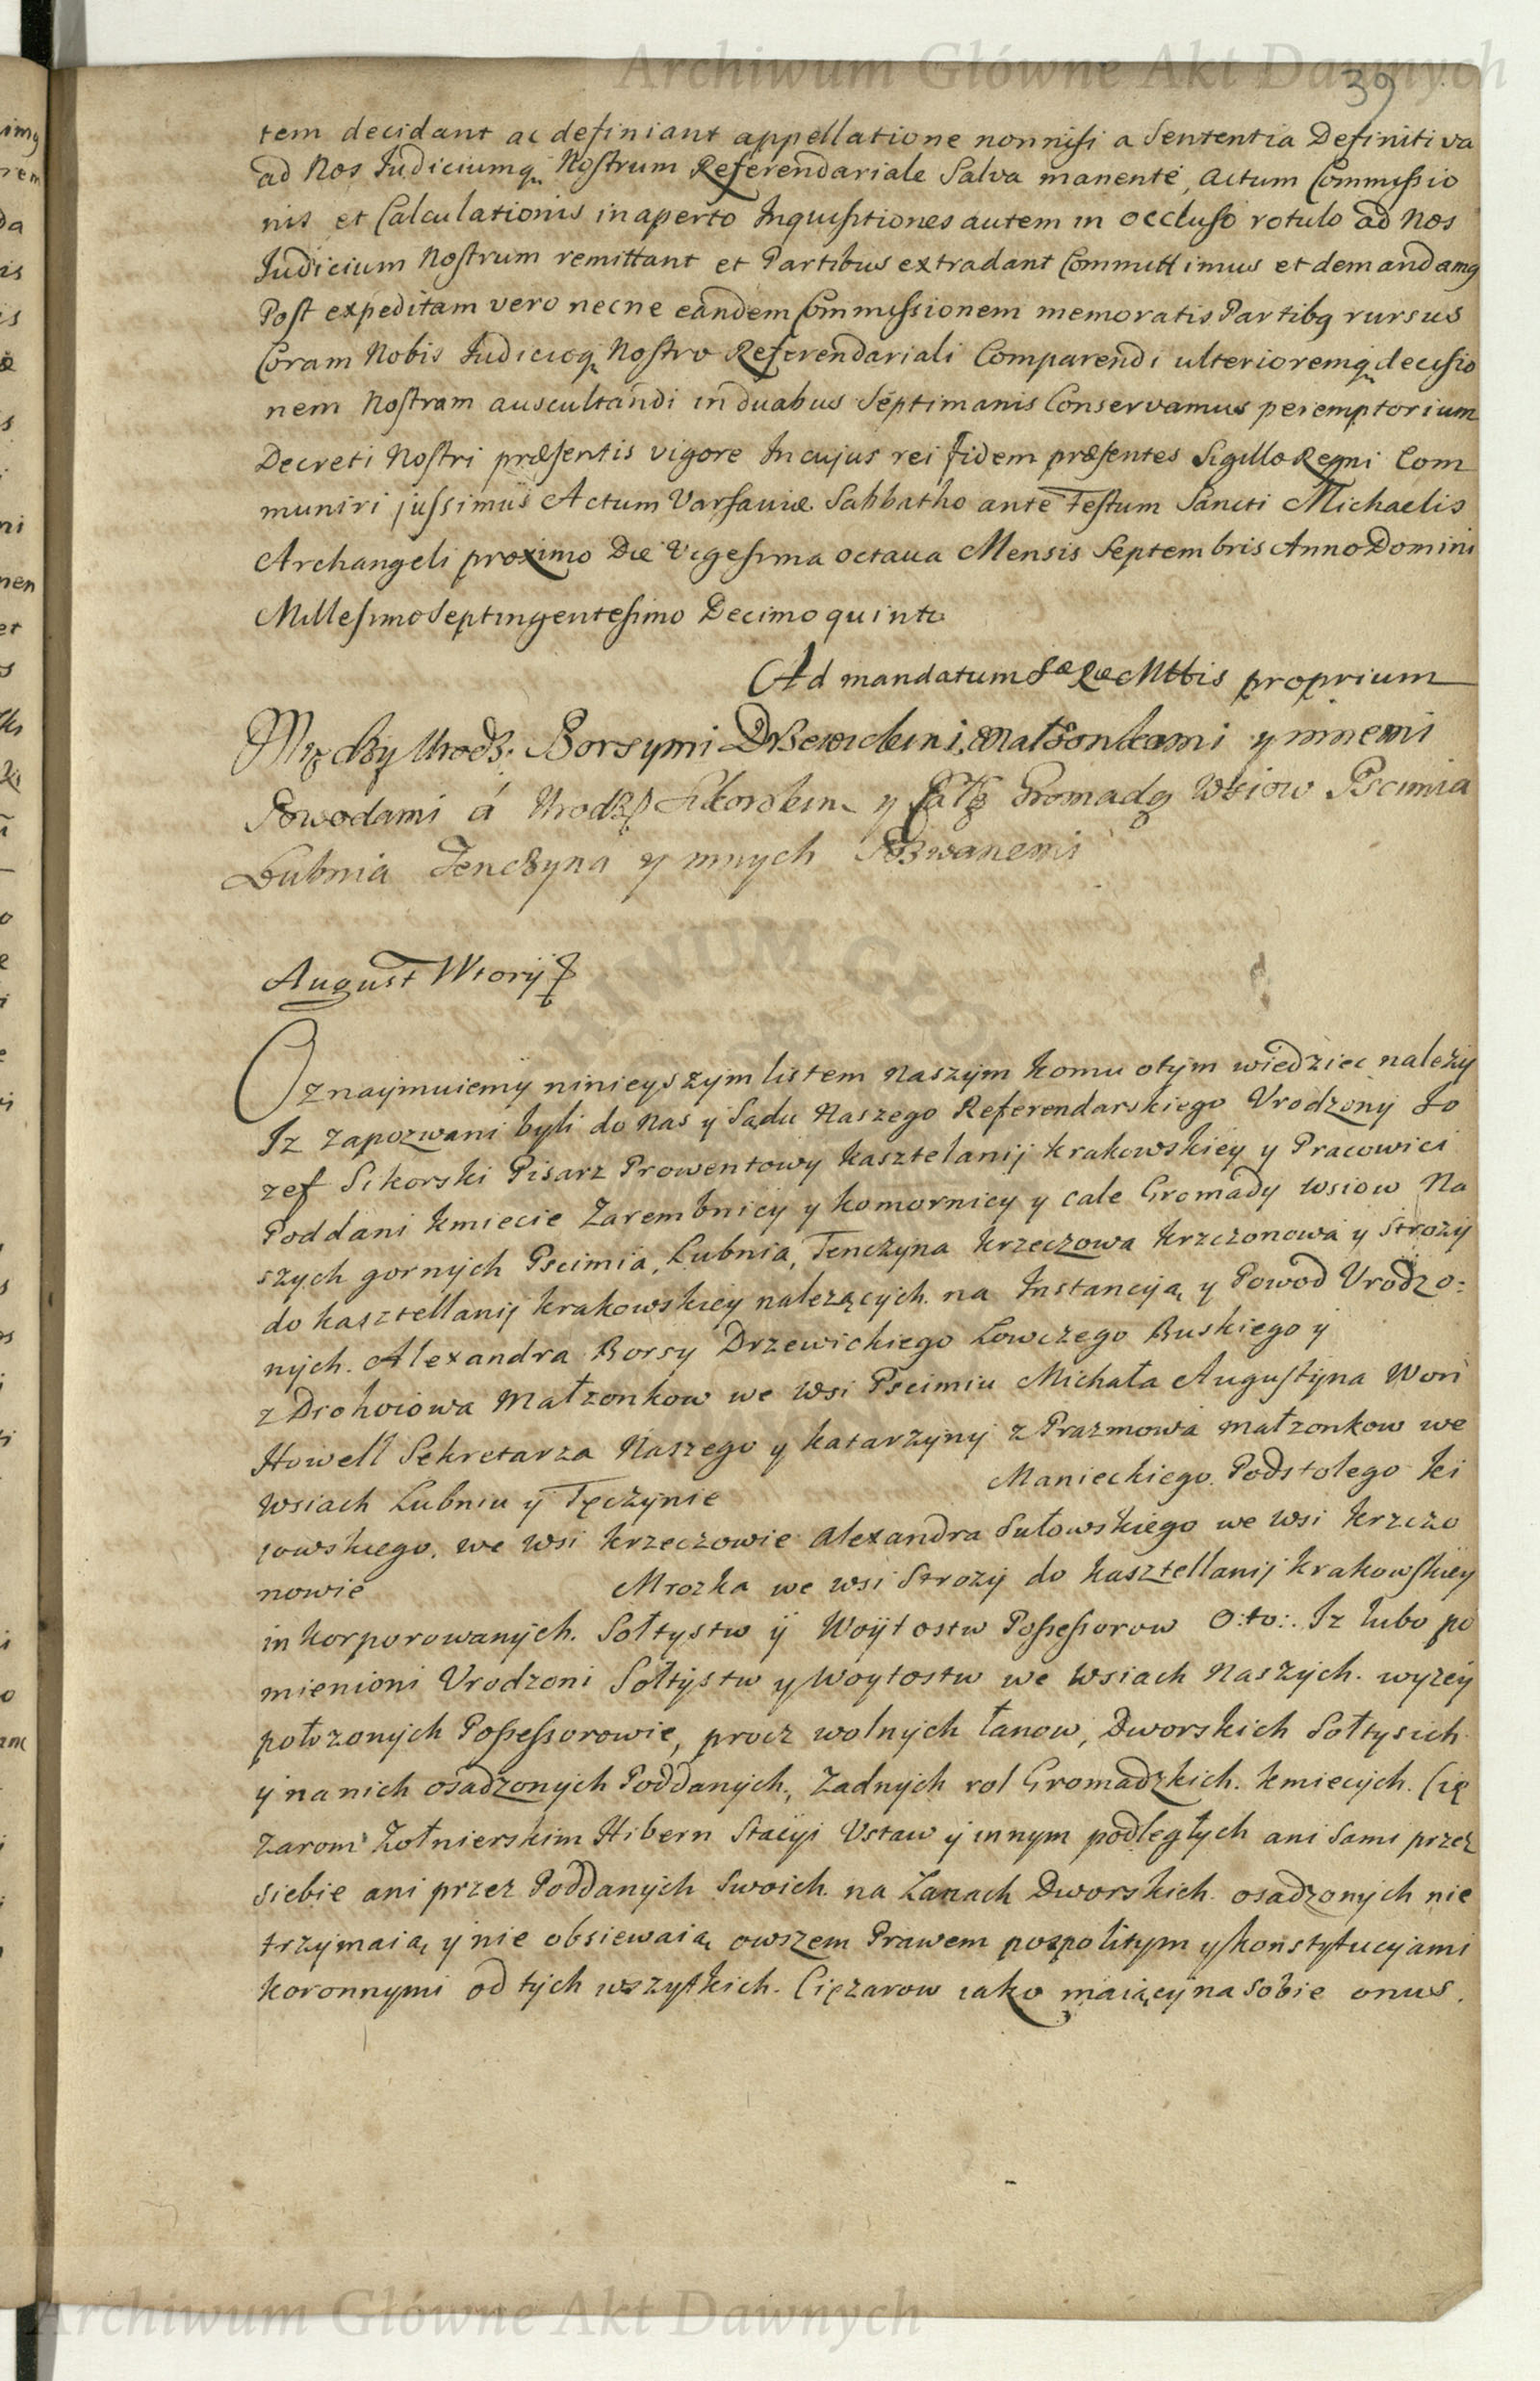 Archiwum Główne Akt Dawnych
39
tem decidant ac definiant appellatione nonnisi a Sententia Definitiva
ad Nos Iudiciumq. Nostrum Referendariale Salva manente, actum Commissio
nis et Calculationis in aperto Inquisitiones autem in occluso rotulo ad Nos
Iudicium Nostrum remittant et Partibus extradant Committimus et demandamq
Post expeditam vero necne eandem Commissionem memoratis Partibq rursus
Coram Nobis Iudicioq. Nostro Referendariali Comparendi ulterioremq. decisio
nem Nostram auscultandi in duabus Septimanis Conservamus peremptorium
Decreti Nostri præsentis vigore In cujus rei fidem præsentes Sigillo Regni Com
muniri jussimus Actum Varsaviæ Sabbatho ante Festum Sancti Michaelis
Archangeli proximo Die Vigesima octava Mensis Septembris Anno Domini
Millesimo Septingentesimo Decimo quinto
Ad mandatum Sæ Ræ Mttis proprium
Między Urodz. Borsymi Drzewickimi Małżonkami y innemi
Powodami á Urodz. Sikorskim y całą Gromadą Wsiow Pscimia
Lubnia Tenczyna y innych Pozwanemi
August Wtorÿ
Oznaymuiemy ninieyszym listem naszym komu otym wiedziec należy
Iz zapozwani byli do Nas y Sądu Naszego Referendarskiego Vrodzony Jo
zef Sikorski Pisarz Prowentowy kasztelanij krakowskiey y Pracowici
Poddani kmiecie Zarembnicy y komornicy y cale Gromady wsiow Na
szych gornych Pscimia, Lubnia, Tenczyna krzeczowa krzczonowa y Strozy
do kasztellanij krakowskiey nalezących. na Instancyią y Powod Vrodzo:
nych. Alexandra Borsy Drzewickiego Lowczego Buskiego y
z Drohoiowa Małzonkow we wsi Pscimiu Michała Augustyna Won
Howell Sekretarza Naszego y katarzyny z Prazmowa małzonkow we
wsiach Lubniu y Tęczynie Manieckiego. Podstolego ki
iowskiego. we wsi krzeczowie Alexandra Sułowskiego we wsi krzczo
nowie Mrozka we wsi Strozy do kasztellanij krakowskiey
inkorporowanych. Sołtystw ÿ Woÿtostw Possessorow O:to:. Iz lubo po
mienioni Vrodzoni Sołtystw y Woytostw we wsiach Naszych. wyzey
połozonych Possessorowie, procz wolnych łanow, Dworskich Sołtysich
y na nich osadzonych Poddanych, Zadnych rol Gromadzkich. kmiecych. Cię
zarom Zołnierskim Hibern Stacyi Vstaw y innym podległych ani Sami przez
siebie ani przez Poddanych Swoich. na Łanach Dworskich. osadzonych nie
trzymaią y nie obsiewaią owszem Prawem pospolitym y konstytucyiami
koronnymi od tych wszytkich. Ciężarow iako maiący na Sobie onus.
Archiwum Główne Akt Dawnych